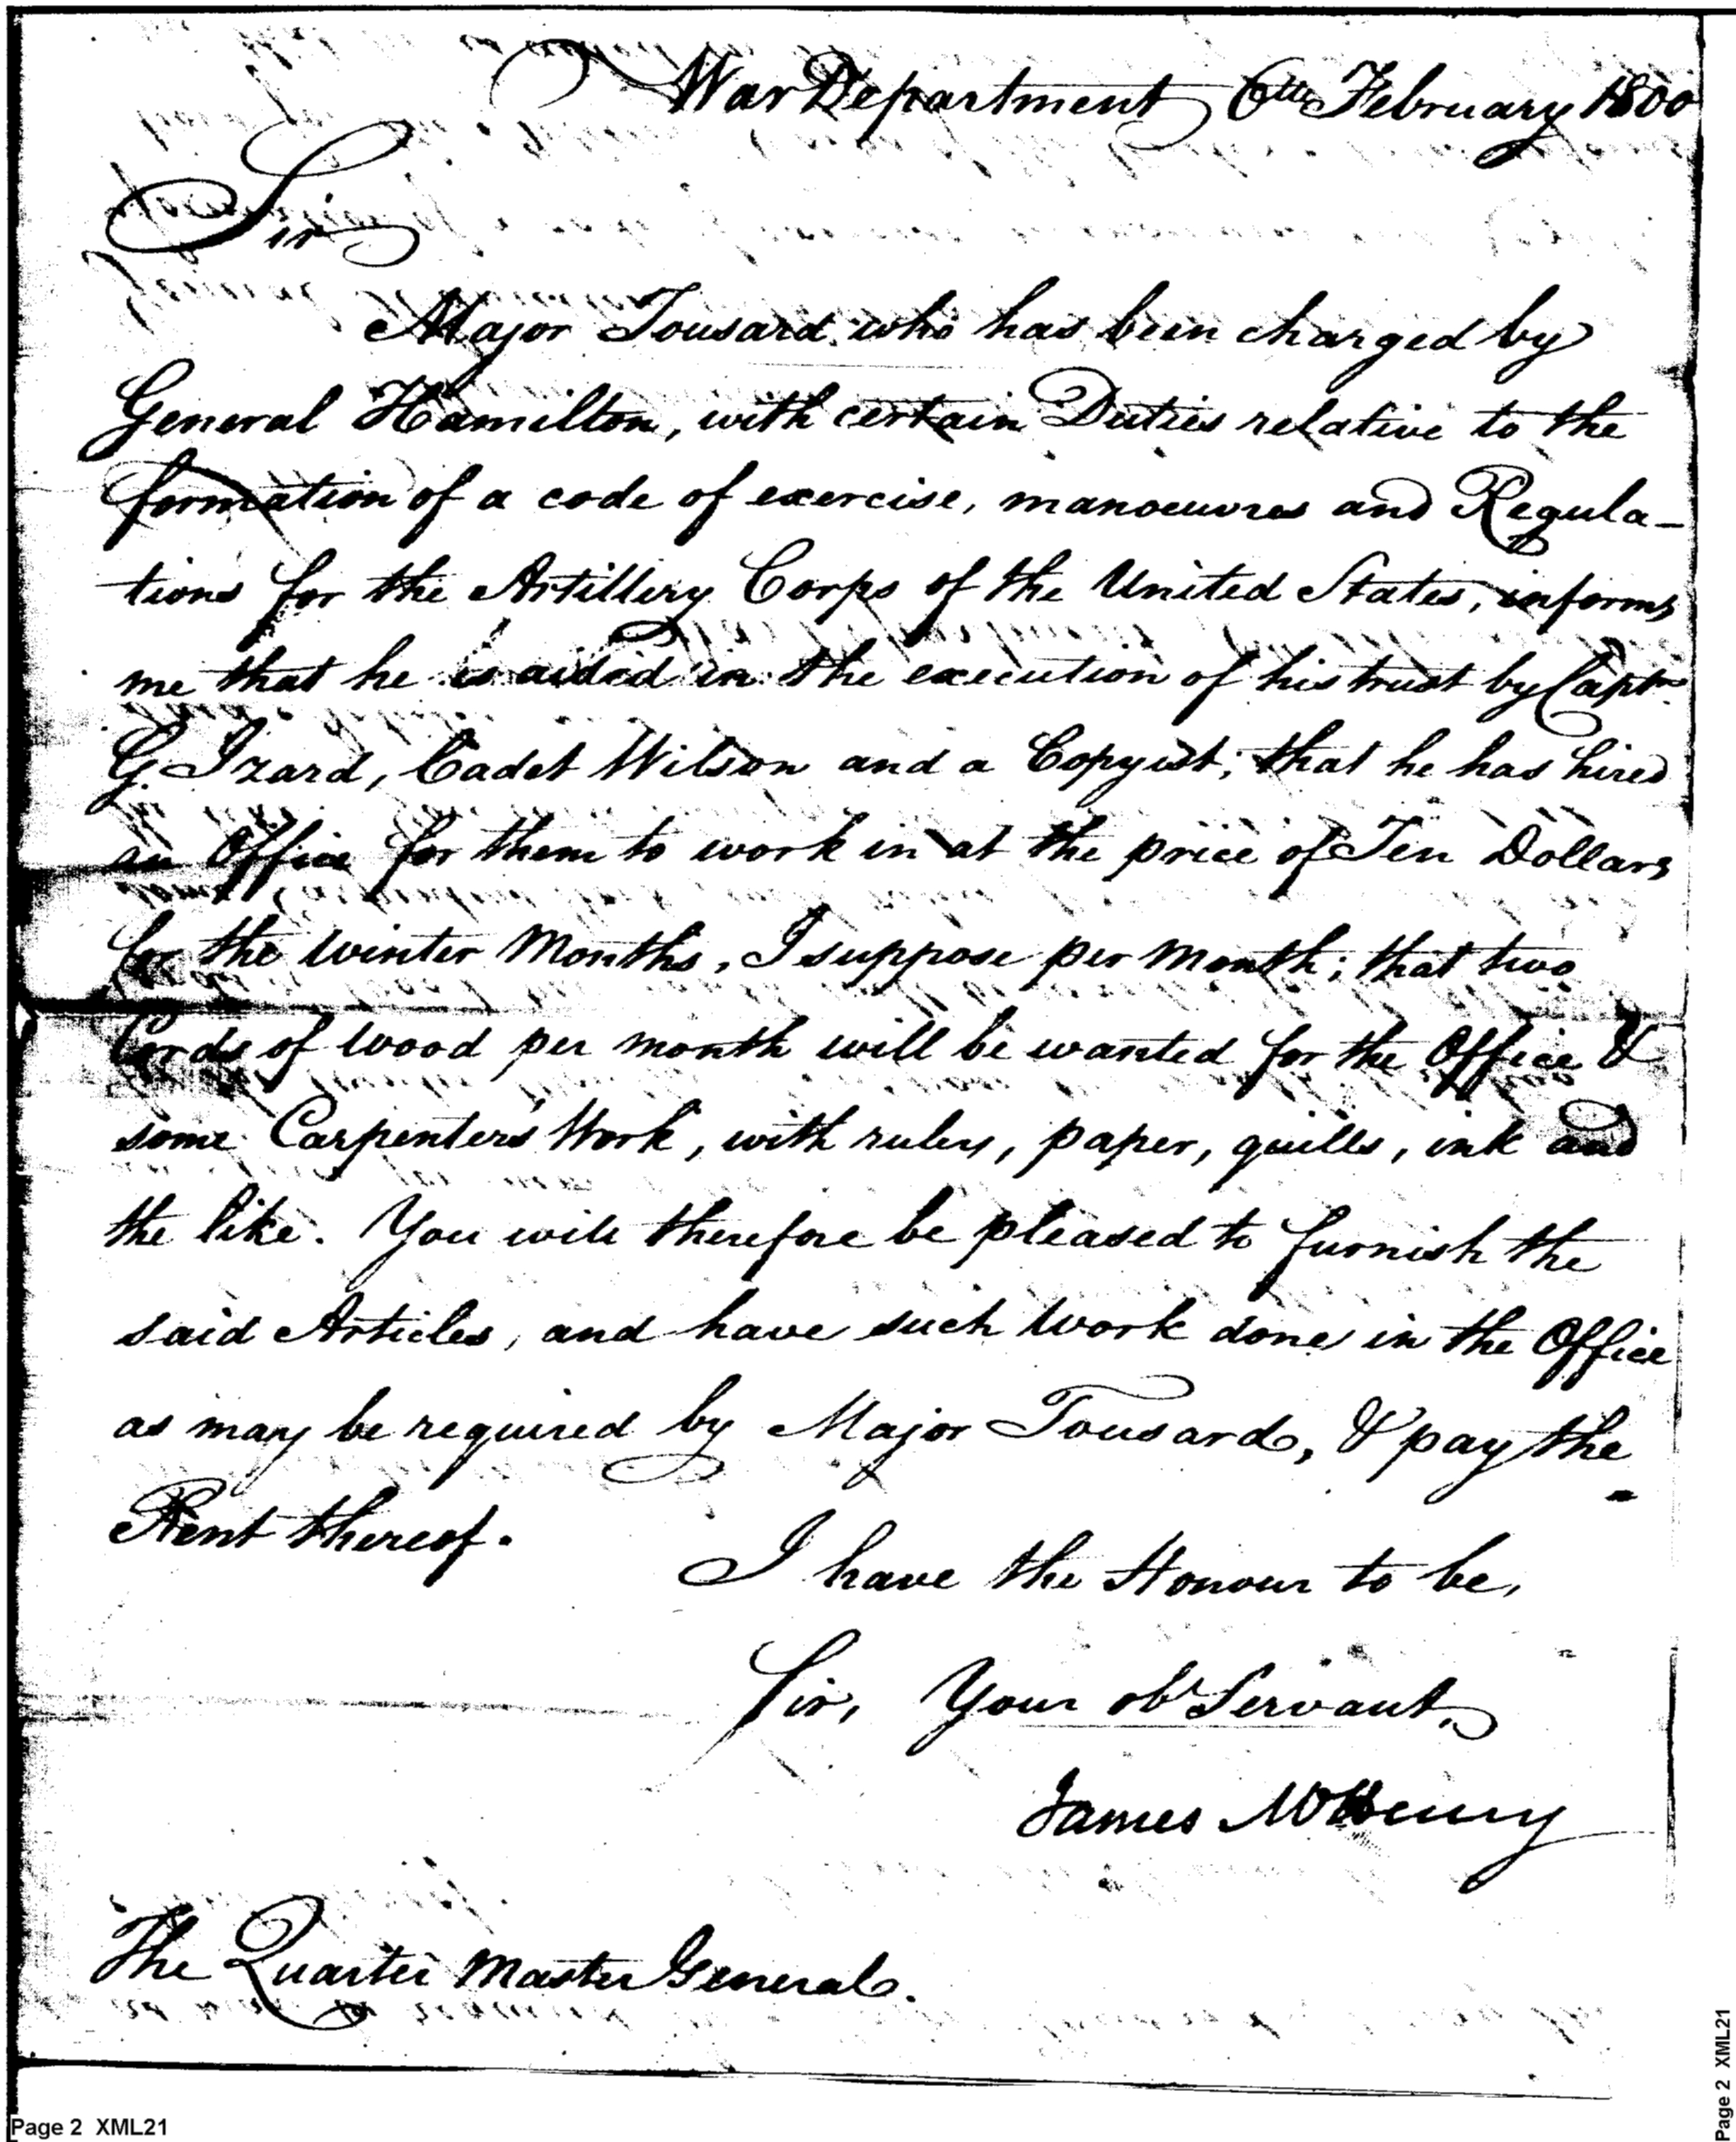 War Department 6th February 1800
Sir
Major Tousard who has been charged by
General Hamilton, with certain Duties relative to the
formation of a code of exercise, manoeuvres and Regula-
tions for the Artillery Corps of the United States, informs
me that he is aided in the execution of his trust by Captn
G. Izard, Cadet Wilson and a Copyist; that he has hired
an Office for them to work in at the price of Ten Dollars
for the Winter Months, I suppose per Month; that two
Cords of Wood per month will be wanted for the Office &
some Carpenter's Work, with rulers, paper, quills, ink and
the like. You will therefore be pleased to furnish the
said Articles, and have such Work done in the Office
as may be required by Major Tousard, & pay the
Rent thereof.
I have the Honour to be,
Sir, Your obt Servant,
James McHenry
The Quarter Master General.
Page 2 XML21
Page 2 XML21